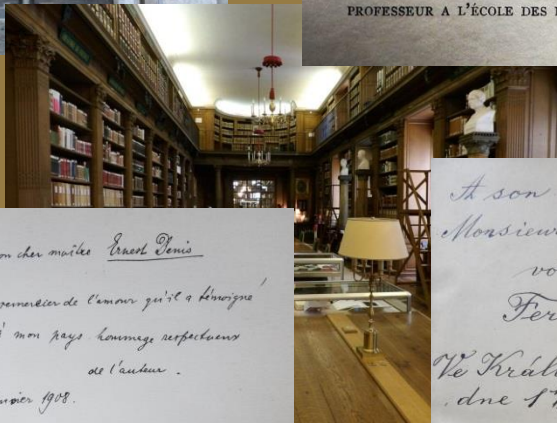 PROFESSEUR A L'ÉCOLE DES
on cher maître Ernest Denis
remercier de l'amour qu'il a témoigné
à mon pays hommage respectueux
de l'auteur.
1908.
A son
Monsieur
vo
Fer
Ve Králi
dne 17